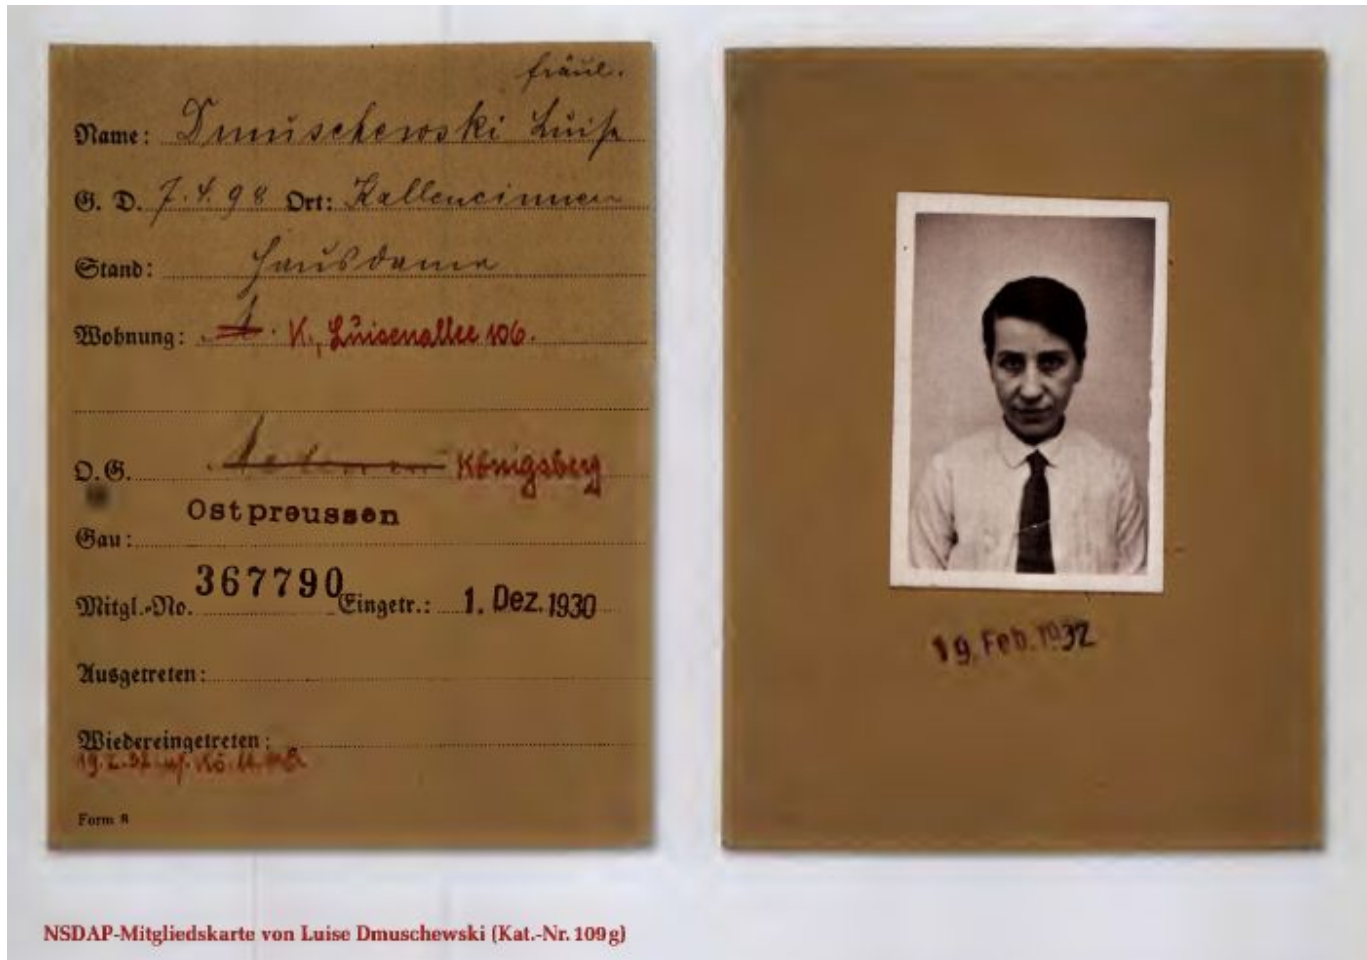 Fräul.
Name: Dmuschewski Luise
G. D. 7.4.98 Ort: Kallencinnen
Stand: Hausdame
Wohnung: K., Luisenallee 106.
O.G. Königsberg
Ostpreussen
Gau:
Mitgl.-No. 367790 Eingetr.: 1. Dez. 1930
Ausgetreten:
Wiedereingetreten:
Form 8
19. Feb. 1932
NSDAP-Mitgliedskarte von Luise Dmuschewski (Kat.-Nr. 109 g)